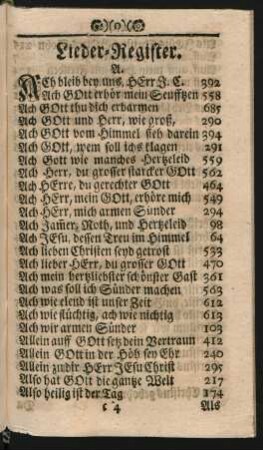 )o(
Lieder-Register.
A.
ACh bleib bey uns, HErr J. C. 392
Ach GOtt erhör mein Seufftzen 558
Ach GOtt thu dich erbarmen 685
Ach GOtt und Herr, wie groß, 290
Ach GOtt vom Himmel sieh darein 394
Ach GOtt, wem soll ichs klagen 291
Ach Gott wie manches Hertzeleid 559
Ach Herr, du grosser starcker GOtt 562
Ach HErre, du gerechter GOtt 464
Ach HErr, mein GOtt, erhöre mich 549
Ach HErr, mich armen Sünder 294
Ach Jam̃er, Noth, und Hertzeleid 98
Ach JEsu, dessen Treu im Himmel 64
Ach lieben Christen seyd getrost 533
Ach lieber HErr, du grosser GOtt 470
Ach mein hertzliebster schönster Gast 361
Ach was soll ich Sünder machen 563
Ach wie elend ist unser Zeit 612
Ach wie flüchtig, ach wie nichtig 613
Ach wir armen Sünder 103
Allein auff GOtt setz dein Vertraun 412
Allein GOtt in der Höh sey Ehr 240
Allein zu dir HErr JEsu Christ 295
Also hat GOtt die gantze Welt 217
Also heilig ist der Tag 174
c 4 Als